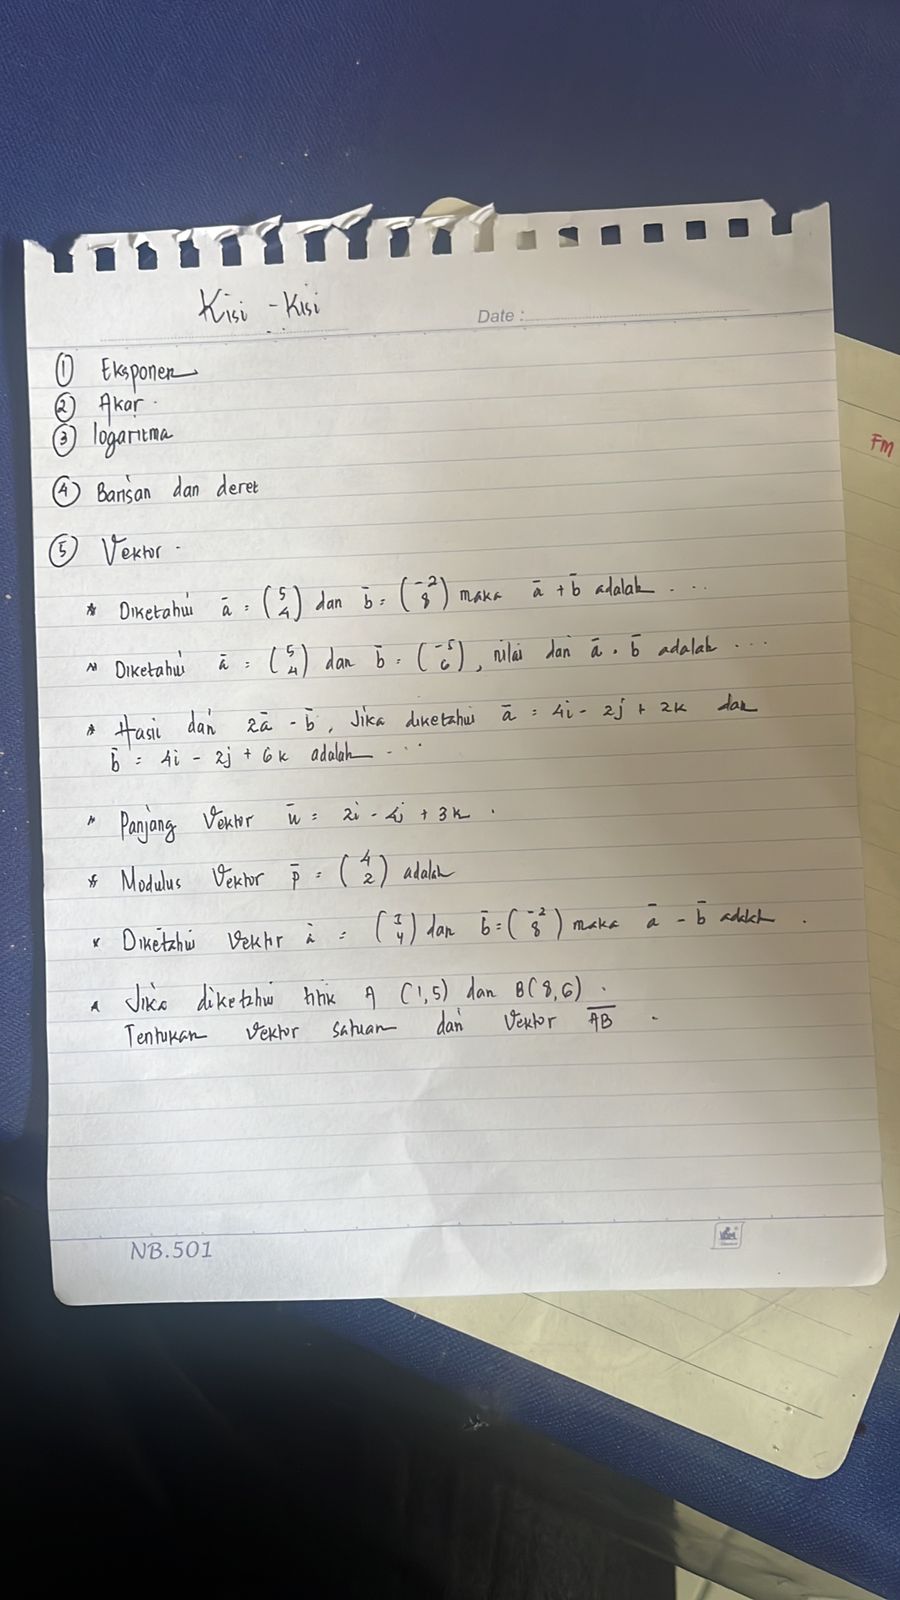 Kisi - Kisi
Date :
① Eksponen
② Akar.
③ logaritma
④ Barisan dan deret
⑤ Vektor.
* Diketahui ā = (5 4) dan b̄ = (-2 8) maka ā + b̄ adalah ....
* Diketahui ā = (5 4) dan b̄ = (-5 6), nilai dari ā . b̄ adalah ...
* Hasil dari 2ā - b̄, Jika diketahui ā = 4i - 2j + 2k dan
b̄ = 4i - 2j + 6k adalah ...
* Panjang Vektor ū = 2i - 4j + 3k.
* Modulus Vektor p̄ = (4 2) adalah
* Diketahui Vektor ā = ( 4) dan b̄ = (-2 8) maka ā - b̄ adalah.
* Jika diketahui titik A (1,5) dan B(8,6).
Tentukan Vektor satuan dari Vektor A̅B̅.
NB.501
FM